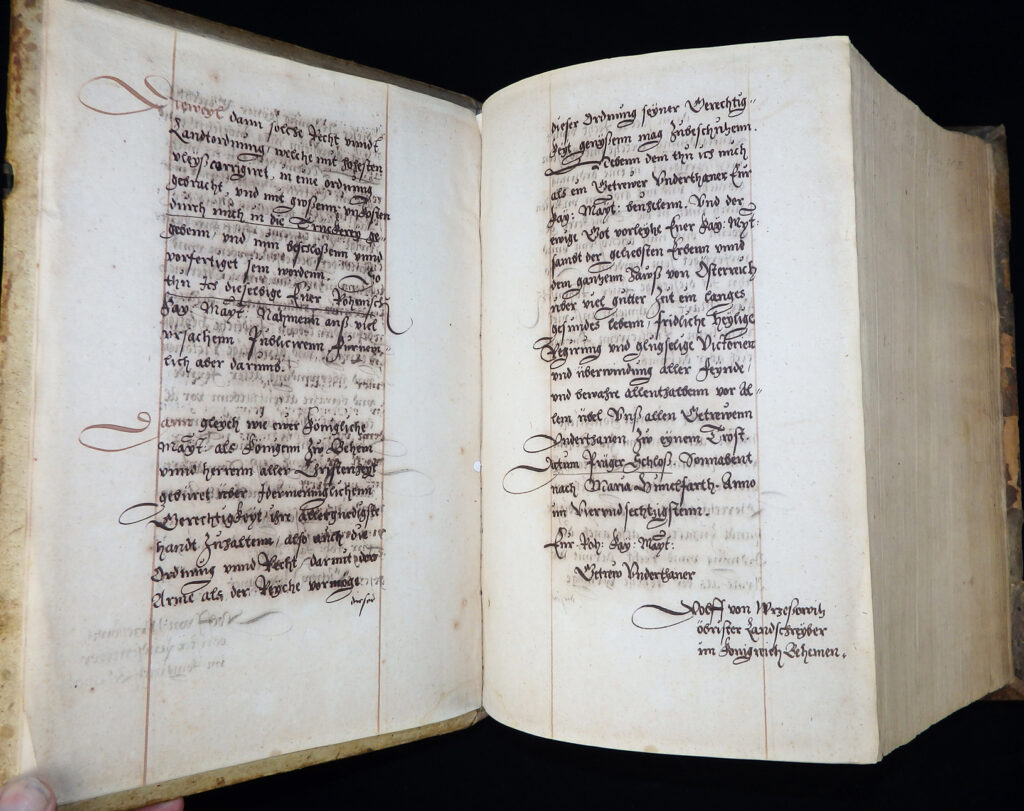 Dieweyl dann solche Recht vnndt
Landtordnung, welche mit höchsten
vleyß corrigiret, in eine ordnung
gebracht, vnd mit grossenn vnkosten
durch mich in die Druckerey ge-
gebenn, vnd nun beschlossenn vnnd
vorfertiget sein wordenn. So
thu Ich dieselbige Euer Röhmisch
Kay: Mayt: Nahmenn auß viel
vrsachenn Publicirenn Fürnem-
lich aber darumb.
Dann gleych wie ewer Königliche
Mayt: als Königenn Zw Behem
vnnd herrenn aller Christenheyt
gebüret vber Idermenniglichenn
Gerechtigkeyt ihre allergnedigste
handt Zuhaltenn, also auch die
Ordnung vnnd Recht, darmit der
Arme als der Reyche vormöge
dieser
dieser Ordnung seyner Gerechtig-
keyt genyssenn mag Zubeschuhenn.
Nebenn dem thu ich mich
als ein Getrewer Vnderthaner Eur
Kay: Mayt: beuehlenn. Vnd der
ewige Got vorleyhe Euer Kay: Myt:
sambt der geliebsten Erbenn vnnd
dem ganzenn Hauß von Österreich
vber viel gutter Zeit ein langes
gesundes lebenn, fridliche Heylige
Regirung vnd glugselige Victorien
vnd überwindung aller Feynde,
vnd bewahre allenthalbenn vor Al-
lem übel. Vnß allen Getrewenn
Vnderthanen Zw eynem Trost.
Actum Präger Schloß. Sonnabent
nach Maria Himelfarth. Anno
im Viervndsechtzigstenn.
Eur. Röh: Kay: Mayt:
Getreu Vnderthaner
Wolff von Wrzesowitz
öbrister Landschreyber
im Königreich Behemen.